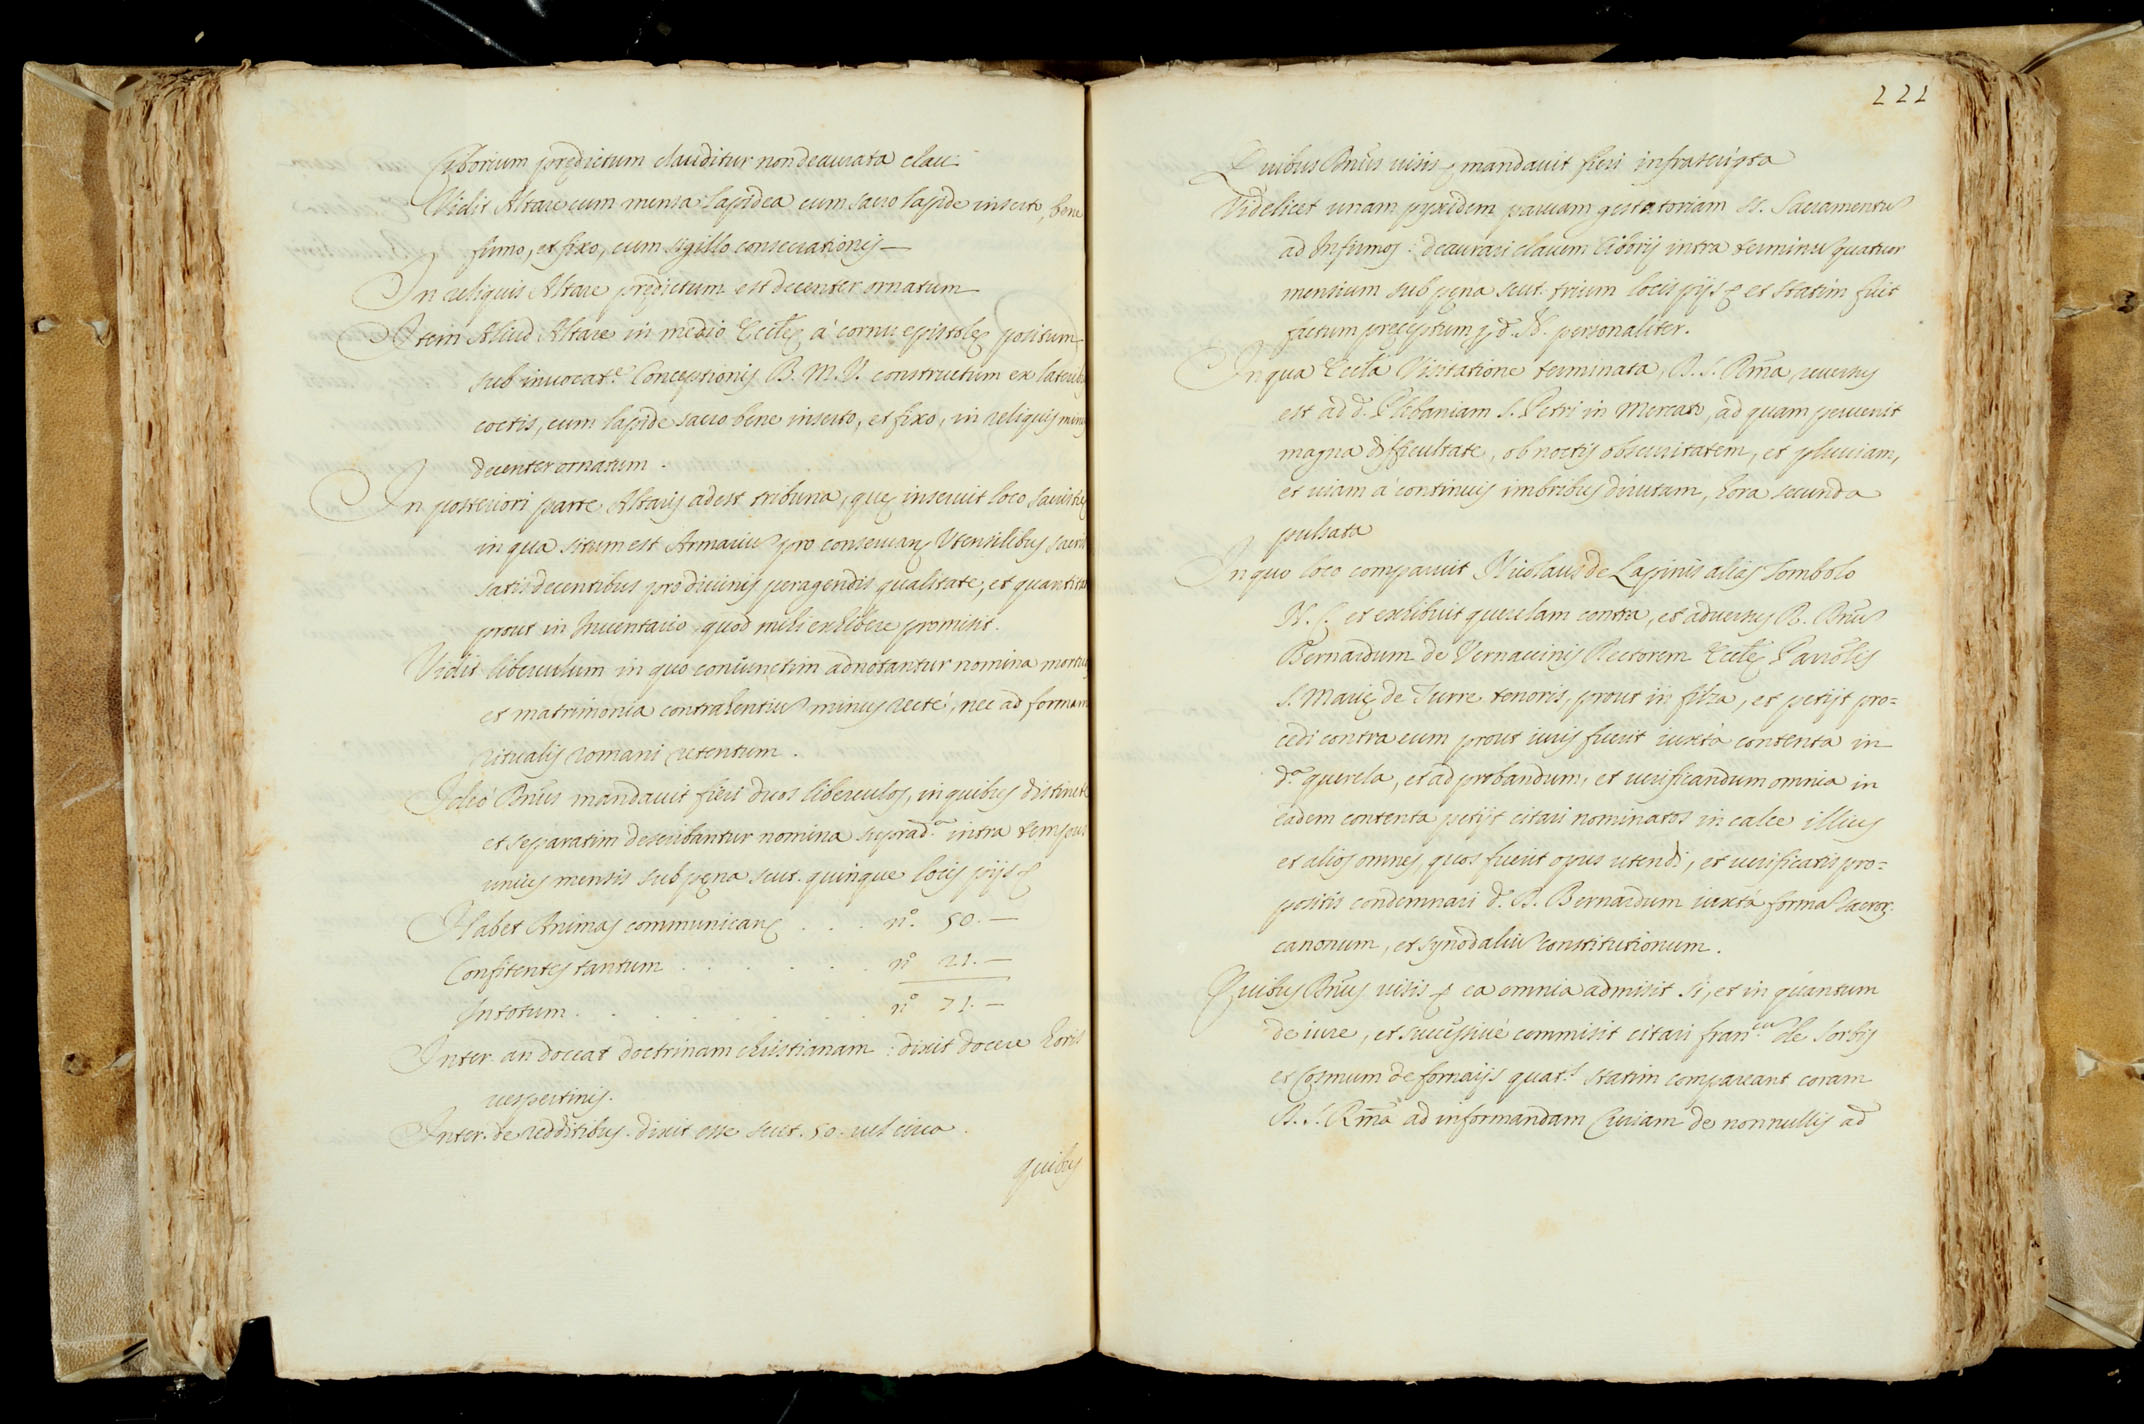 Ciborium prędictum clauditur non deaurata clau.
Vidit Altare cum mensa lapidea cum sacro lapide inserto, bene
firmo, et fixo, cum sigillo consecrationis —
In reliquis Altare prędictum est decenter ornatum
Item Aliud Altare in medio Eccłę á cornu epistolę positum
sub inuocat.e Conceptionis B. M. V. constructum ex laterib
coctis, cum lapide sacro bene inserto, et fixo, in reliquis minus
decenter ornatum.
In posteriori parte Altaris adest tribuna, quę inseruit loco sacristię
in qua situm est Armariũ pro conseruan. Vtensilibus sacris
satis decentibus pro diuinis peragendis qualitate, et quantita
prout in Inuentario, quod mihi exhibere promisit.
Vidit liberculum in quo coniunctim adnotantur nomina mortuo
et matrimonia contrahentiũ minus recté, nec ad formam
ritualis romani retentum.
Ideó Dñus mandauit fieri duos liberculos, in quibus distincte
et separatim describantur nomina suprad.a intra tempus
unius mensis sub pęna scut. quinque locis pijs &
Habet Animas communican. . . . n.o 50. —
Confitentes tantum . . . . . . n.o 21. —
In totum . . . . . . . . n.o 71. —
Inter. an doceat doctrinam christianam: dixit docere horis
uespertinis.
Inter. de redditibus. dixit esse scut. 50. uel circa.
quibus
222
Quibus Dñus uisis, mandauit fieri infrascripta
Videlicet unam pyxidem paruam gestatoriam SS. Sacramentũ
ad Infirmos: deaurari clauem Ciborij intra terminũ quatuor
mensium sub pęna scut. trium locis pijs & et statim fuit
factum pręceptum p. d. R. personaliter.
In qua Eccła Visitatione terminata, D. S. Rm̃a, reuersus
est ad d. Plebaniam S. Petri in Mercato, ad quam peruenit
magna difficultate, ob noctis obscuritatem, et pluuiam,
et uiam á continuis imbribus dirutam, hora secunda
pulsata
In quo loco comparuit Nicolaus de Lapinis alias Sombolo
N. S. et exhibuit querelam contra, et aduersus R. Dñũ
Bernardum de Vernaccinis Rectorem Eccłę Parõlis
S. Marię de Turre tenoris, prout in filza, et petijt pro=
cedi contra eum prout iuris fuerit iuxta contenta in
d.a querela, et ad probandum, et uerificandum omnia in
eadem contenta petijt citari nominatos in calce illius
et alios omnes, quos fuerit opus utendi, et uerificatis pro=
positis condemnari d. R. Bernardum iuxtá formã Sacror.
canonum, et synodaliũ constitutionum.
Quibus Dñus uisis & ea omnia admisit si, et in quantum
de iure, et successiué commisit citari fran.cum de Sorbis
et Cosmum de fornaijs quat.s statim compareant coram
D. S. Rm̃a ad informandam Curiam de nonnullis ad